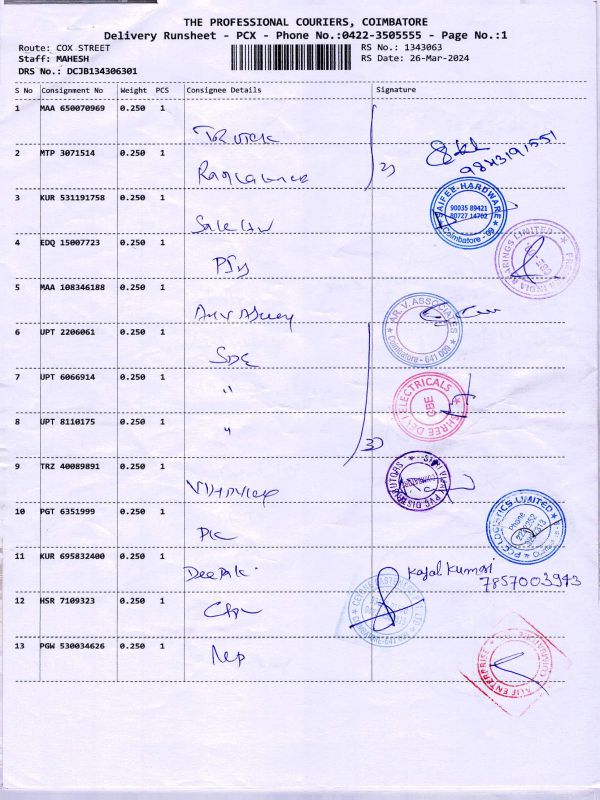 THE PROFESSIONAL COURIERS, COIMBATORE
Delivery Runsheet - PCX - Phone No.:0422-3505555 - Page No.:1
Route: COX STREET
RS No.: 1343063
Staff: MAHESH
RS Date: 26-Mar-2024
DRS No.: DCJB134306301
S No Consignment No Weight PCS Consignee Details Signature
1 MAA 650070969 0.250 1
2 MTP 3071514 0.250 1
9843191551
3 KUR 531191758 0.250 1
SAIFEE HARDWARE
90035 89421
80727 14702
Coimbatore - 09
4 EDQ 15007723 0.250 1
BEARINGS LIMITED
CBE
5 MAA 108346188 0.250 1
AR. V. ASSOCIATES
Coimbatore - 641 009
6 UPT 2206061 0.250 1
SDE
7 UPT 6066914 0.250 1
"
SHREE DEVI ELECTRICALS
CBE
8 UPT 8110175 0.250 1
"
3)
9 TRZ 40089891 0.250 1
SHRI VIJAY PVC DISTRIBUTORS
10 PGT 6351999 0.250 1
PCC LOGISTICS LIMITED
Phone
11 KUR 695832400 0.250 1
Deepak
Kajal Kumari
7857003943
12 HSR 7109323 0.250 1
13 PGW 530034626 0.250 1
ALIF ENTERPRISE